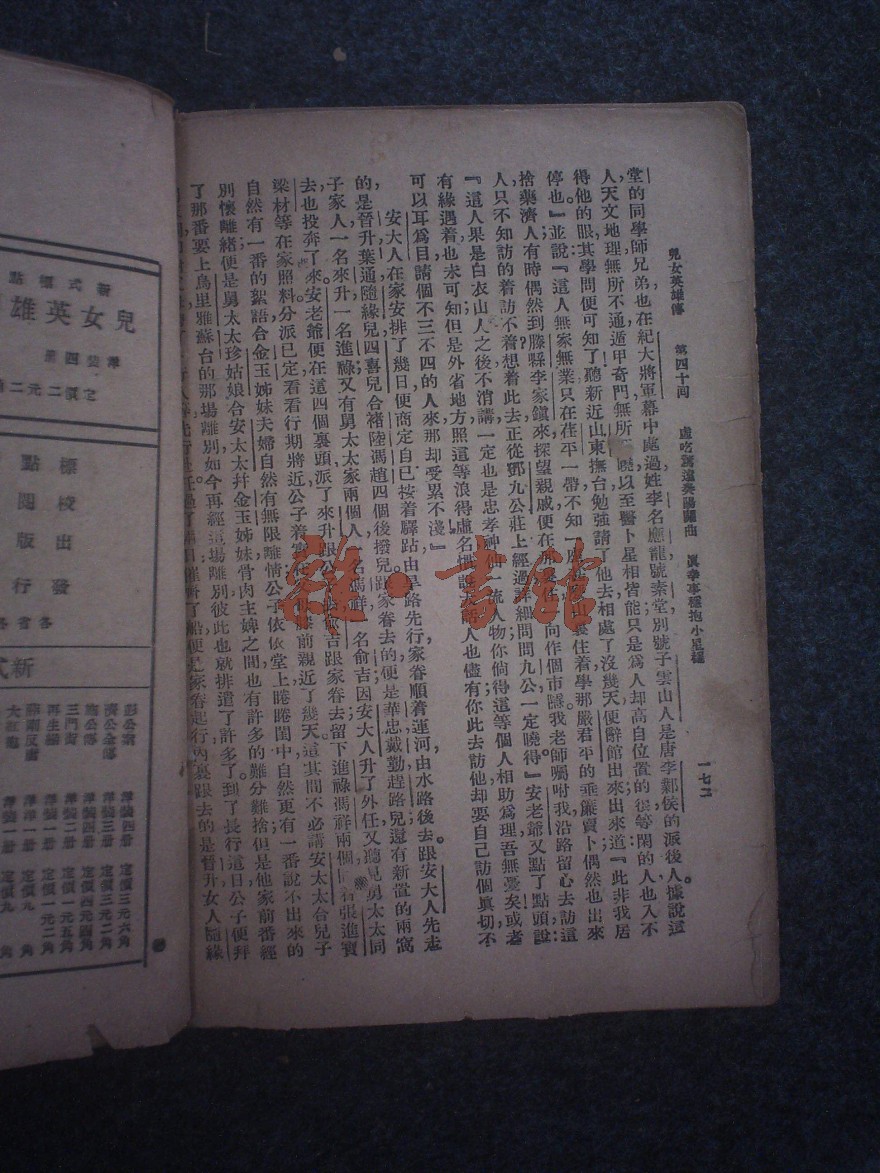 兒女英雄傳　第四十回　　一七二
堂的同學師兄弟，也在紀大將軍幕中處過，姓李名應龍，號素堂，別號子雲山人，是唐李鄴侯的派後人。據說這
人天文地理無所不通，遁甲奇門無所曉，以至醫卜星相皆能，只是爲人却高自位置的很，等閑的人也入不
得他的眼，其學問便可知了。聽新近山東撫台勉強請了他去，相處了沒幾天，便辭館出來，出來道：『此非我居
停也』並說『這人無家無業，只在茌平一帶不知山裏住着，學那嚴君平的垂簾賣卜，偶然也出來
捨藥濟人，有時偶然到滕縣李家鎮來探望親戚，便在向作個市隱。我老師囑咐我沿路留心去訪這
人，只不知訪的着訪不着，想着此去正從鄧九公莊上經過，細問問九公一定曉得。』安老爺又點了點頭說：
『這人果是白衣山人之後，不消講一定也是忠孝神仙一流人物，你倘得這等個人相助爲理，吾無憂矣；或者
有緣遇着，也未可知。但是外省地方照這等浪得虛名，人也儘有，你此去訪他，却要自己訪個眞切，不
可以耳爲目，請個不三不四的人來，那却受累不淺。』
安大人在家安排了幾日，便商定自己按着驛站由旱路先行，家眷順着運河由水路後去。跟安大人先走
的是晉升葉通隨緣兒四喜兒合褚陸馮趙四個；後撥兒跟家眷去的，便是華忠戴勤趕路兒，還有新置的兩窩
子家人，一名來升，一名進祿；又有舅太太家兩個人，名馮祥，名俞吉，因安大人升了外任，又聽見舅太太同
去，也投奔了來。安老爺便在這四個裏頭派了來升跟公俞吉跟家眷去，留下進祿馮祥兩個張進寶
梁材等在家照料。分派已定，看看行期將近，公子着膝前親近了幾天，這其間不必講安太太合兒子
自然有一番的絮語，合金玉姊妹夫婦自然有無限離情，公子依依堂上，睠睠閨中，自然更有一番說不出來的
別懷離緒；便是舅太太珍姑娘合安太太并金玉姊妹骨肉主婢之間，也有許多的難分難捨。但是他家前番經
了那番要上烏里雅蘇台的那場離別，如今再經這場離別，彼此也就排遣了許多了。到了長行這日，公子便拜
新式標點
兒女英雄
洋裝四册
定價二元二角
標點
校閱
出版
發行
各省各
新式
彭公案　洋裝四册　定價三元六角
濟公全傳　洋裝三册　定價三元二角
施公傳　洋裝四册　定價四元四角
三門街　洋裝二册　定價一元二角
再生緣　洋裝二册　定價一元五角